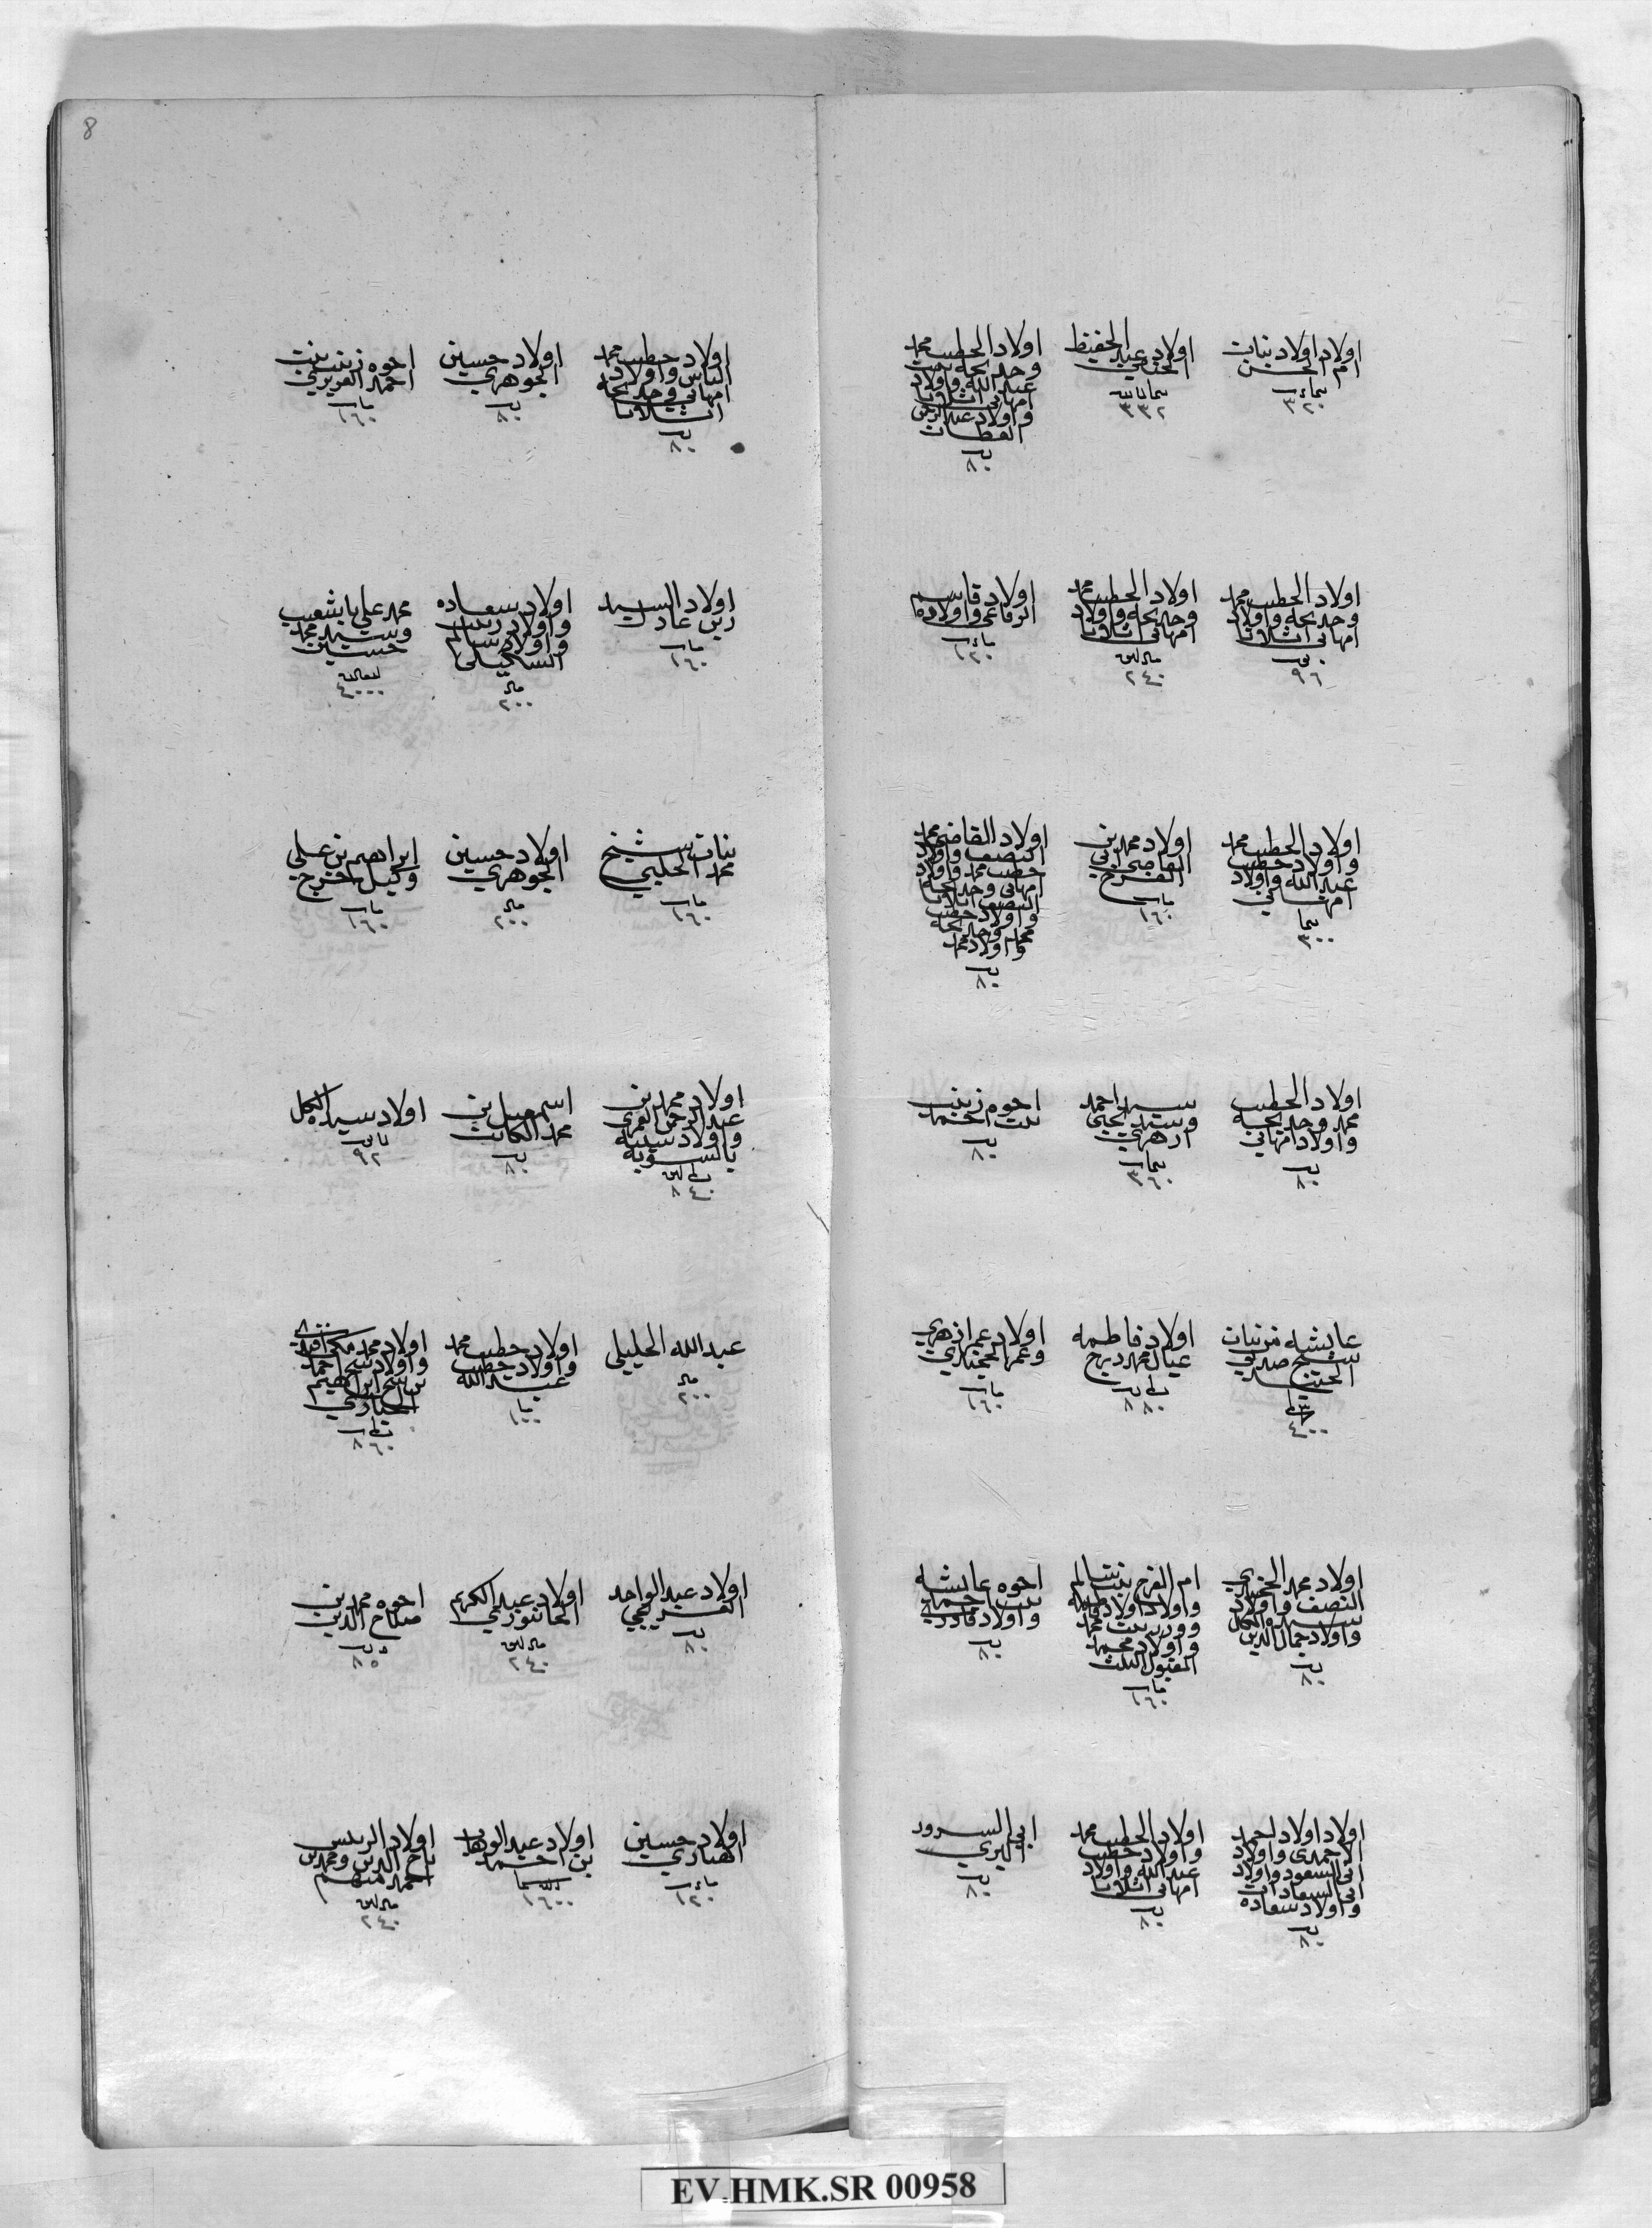 8
اولاد اولاد بنات
ام الحسن
٣٢٠
اولاد عبد الحفيظ
٣٣٢
اولاد الخطيب محمد
وخديجه بنت
عبد الله واولاد
امهاني اثلاثا
واولاد عبد الرحمن
القطان
٨٠
اولاد الخطيب محمد
وخديجه واولاد
امهاني اثلاثا
٩٦
اولاد الخطيب محمد
وخديجه واولاد
امهاني اثلاثا
٢٤٠
اولاد قاسم
الرفاعي واولاده
١٢٠
اولاد الخطيب محمد
واولاد خطيب
عبد الله واولاد
امهاني
٣٠٠
اولاد محمد بن
القاضي ابي
الفرج
١٦٠
اولاد القاضي محمد
النصف واولاد
خطيب محمد واولاد
امهاني وخديجه
النصف اثلاثا
واولاد خطيب
محمد وخديجه
واولاد محمد
٨٠
اولاد الخطيب
محمد وخديجه
واولاد امهاني
٨٠
سيد احمد
وسيد يحيى
ازهري
٣٦٠
اخوه زينب
بنت احمد
٨٠
عايشه من بنات
شيخ صديق
٤٠٠
اولاد فاطمه
عيال محمد درج
٨٨٠
اولاد عمر ازهري
وعمر الخجندي
١٦٠
اولاد محمد الخجندي
النصف واولاد
سيده الكل
واولاد جمال الدين
٨٠
ام الفرج بنت سالم
واولاد اولاد فاطمه
بنت محمد
واولاد محمد
المقبول الثلث
١٦٠
اخوه عايشه
بنت احمد
واولاد قادري
٨٠
اولاد اولاد احمد
الاحمدي واولاد
ابي السعود واولاد
ابي السعادات
واولاد سعاده
٨٠
اولاد الخطيب محمد
واولاد خطيب
عبد الله واولاد
امهاني اثلاثا
٨٠
ابي السرور
البري
٨٠
اولاد خطيب محمد
الياس واولاد
امهاني وخديجه
اثلاثا
٨٠
اولاد حسين
الجوهري
٨٠
اخوه زينب بنت
احمد
١٦٠
اولاد السيد
زين عادل
١٦٠
اولاد سعاده
واولاد زينب
واولاد سالم
٢٠٠
محمد علي باشعيب
وسيد محمد
حسين
٤٠٠٠
بنات شيخ
محمد الحلبي
١٦٠
اولاد حسين
الجوهري
٢٠٠
ابراهيم بن علي
وكيل خرج
١٦٠
اولاد محمد بن
عبد الرحمن العمري
واولاد ستيته
بالسويه
٨٤٠
اسمعيل بن
محمد الكاتب
٨٠
اولاد سيده الكل
٩٢
عبد الله الخليلي
٢٠٠
اولاد خطيب محمد
واولاد خطيب
عبد الله
١٠٠
اولاد محمد مكي افندي
واولاد شيخ احمد
بن شيخ ابراهيم
الخياري
٨٦٠
اولاد عبد الواحد
٨٠
اولاد عبد الكريم
٢٤٠
اخوه محمد بن
صلاح الدين
٨٥
اولاد حسين
الهنادي
١٢٠
اولاد عبد الوهاب
بن احمد
١٦٠٠
اولاد الريس
تاج الدين ومحمد بن
احمد منهم
٢٤٠
EV.HMK.SR 00958